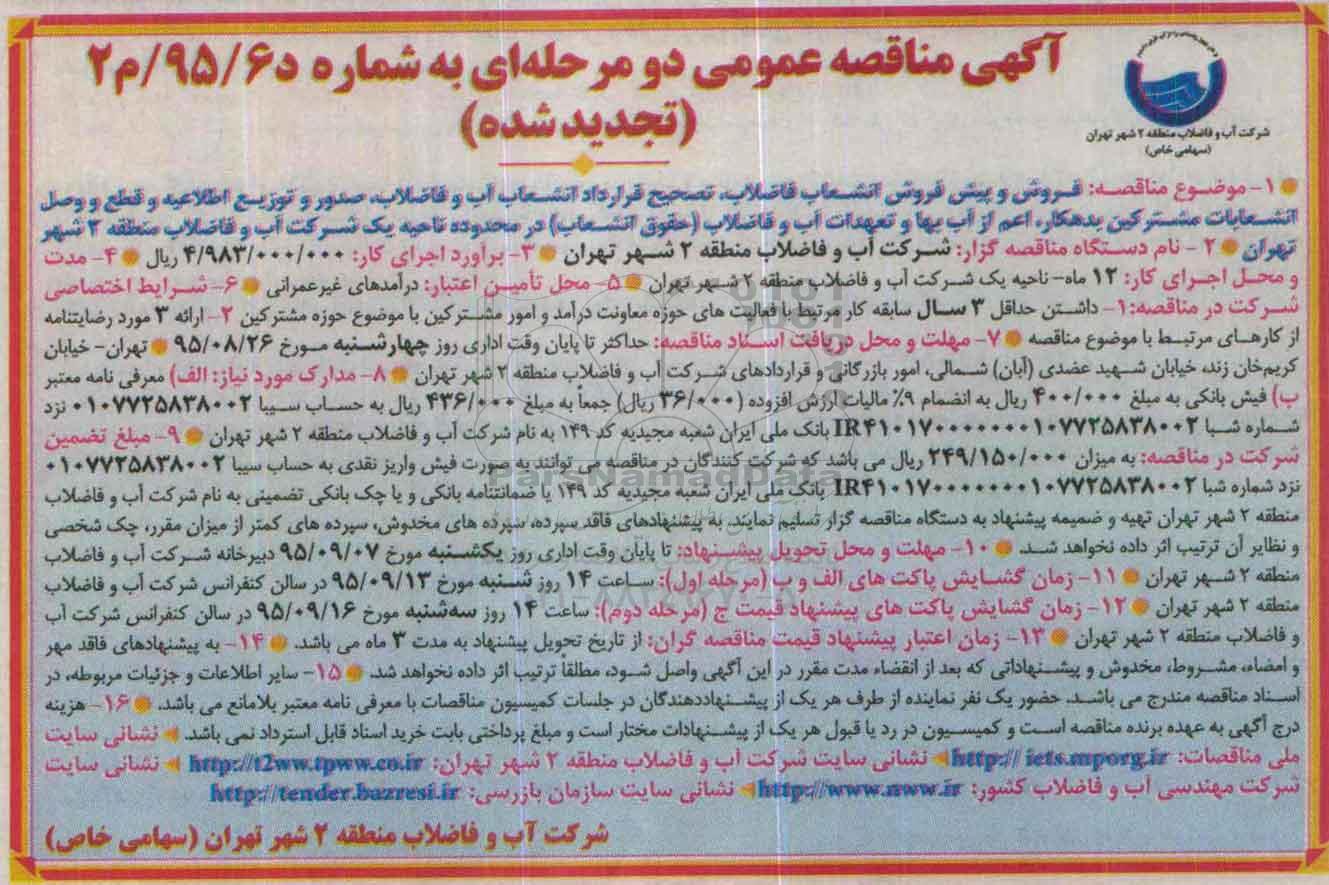 آگهی مناقصه عمومی دو مرحله‌ای به شماره د۹۵/۶/م۲
(تجدید شده)
شرکت آب و فاضلاب منطقه ۲ شهر تهران
(سهامی خاص)
۱- موضوع مناقصه: فروش و پیش فروش انشعاب فاضلاب، تصحیح قرارداد انشعاب آب و فاضلاب، صدور و توزیع اطلاعیه و قطع و وصل
انشعابات مشترکین بدهکار، اعم از آب بها و تعهدات آب و فاضلاب (حقوق انشعاب) در محدوده ناحیه یک شرکت آب و فاضلاب منطقه ۲ شهر
تهران ۲ - نام دستگاه مناقصه گزار: شرکت آب و فاضلاب منطقه ۲ شهر تهران ۳- برآورد اجرای کار: ۴/۹۸۳/۰۰۰/۰۰۰ ریال ۴- مدت
و محل اجرای کار: ۱۲ ماه- ناحیه یک شرکت آب و فاضلاب منطقه ۲ شهر تهران ۵- محل تأمین اعتبار: درآمدهای غیرعمرانی ۶- شرایط اختصاصی
شرکت در مناقصه:۱- داشتن حداقل ۳ سال سابقه کار مرتبط با فعالیت های حوزه معاونت درآمد و امور مشترکین با موضوع حوزه مشترکین ۲- ارائه ۳ مورد رضایتنامه
از کارهای مرتبط با موضوع مناقصه ۷- مهلت و محل دریافت اسناد مناقصه: حداکثر تا پایان وقت اداری روز چهارشنبه مورخ ۹۵/۰۸/۲۶ تهران- خیابان
کریم‌خان زند، خیابان شهید عضدی (آبان) شمالی، امور بازرگانی و قراردادهای شرکت آب و فاضلاب منطقه ۲ شهر تهران ۸- مدارک مورد نیاز: الف) معرفی نامه معتبر
ب) فیش بانکی به مبلغ ۴۰۰/۰۰۰ ریال به انضمام ۹٪ مالیات ارزش افزوده (۳۶/۰۰۰ ریال) جمعاً به مبلغ ۴۳۶/۰۰۰ ریال به حساب سیبا ۰۱۰۷۷۲۵۸۳۸۰۰۲ نزد
شماره شبا IR۴۱۰۱۷۰۰۰۰۰۰۰۱۰۷۷۲۵۸۳۸۰۰۲ بانک ملی ایران شعبه مجیدیه کد ۱۴۹ به نام شرکت آب و فاضلاب منطقه ۲ شهر تهران ۹- مبلغ تضمین
شرکت در مناقصه: به میزان ۲۴۹/۱۵۰/۰۰۰ ریال می باشد که شرکت کنندگان در مناقصه می توانند به صورت فیش واریز نقدی به حساب سیبا ۰۱۰۷۷۲۵۸۳۸۰۰۲
نزد شماره شبا IR۴۱۰۱۷۰۰۰۰۰۰۰۱۰۷۷۲۵۸۳۸۰۰۲ بانک ملی ایران شعبه مجیدیه کد ۱۴۹ یا ضمانتنامه بانکی و یا چک بانکی تضمینی به نام شرکت آب و فاضلاب
منطقه ۲ شهر تهران تهیه و ضمیمه پیشنهاد به دستگاه مناقصه گزار تسلیم نمایند. به پیشنهادهای فاقد سپرده، سپرده های مخدوش، سپرده های کمتر از میزان مقرر، چک شخصی
و نظایر آن ترتیب اثر داده نخواهد شد. ۱۰- مهلت و محل تحویل پیشنهاد: تا پایان وقت اداری روز یکشنبه مورخ ۹۵/۰۹/۰۷ دبیرخانه شرکت آب و فاضلاب
منطقه ۲ شهر تهران ۱۱- زمان گشایش پاکت های الف و ب (مرحله اول): ساعت ۱۴ روز شنبه مورخ ۹۵/۰۹/۱۳ در سالن کنفرانس شرکت آب و فاضلاب
منطقه ۲ شهر تهران ۱۲- زمان گشایش پاکت های پیشنهاد قیمت ج (مرحله دوم): ساعت ۱۴ روز سه‌شنبه مورخ ۹۵/۰۹/۱۶ در سالن کنفرانس شرکت آب
و فاضلاب منطقه ۲ شهر تهران ۱۳- زمان اعتبار پیشنهاد قیمت مناقصه گران: از تاریخ تحویل پیشنهاد به مدت ۳ ماه می باشد. ۱۴- به پیشنهادهای فاقد مهر
و امضاء، مشروط، مخدوش و پیشنهاداتی که بعد از انقضاء مدت مقرر در این آگهی واصل شود، مطلقا ترتیب اثر داده نخواهد شد. ۱۵- سایر اطلاعات و جزئیات مربوطه، در
اسناد مناقصه مندرج می باشد. حضور یک نفر نماینده از طرف هر یک از پیشنهاددهندگان در جلسات کمیسیون مناقصات با معرفی نامه معتبر بلامانع می باشد. ۱۶- هزینه
درج آگهی به عهده برنده مناقصه است و کمیسیون در رد یا قبول هر یک از پیشنهادات مختار است و مبلغ پرداختی بابت خرید اسناد قابل استرداد نمی باشد. نشانی سایت
ملی مناقصات: http:// iets.mporg.ir نشانی سایت شرکت آب و فاضلاب منطقه ۲ شهر تهران: http://t2ww.tpww.co.ir نشانی سایت
شرکت مهندسی آب و فاضلاب کشور: http://www.nww.ir نشانی سایت سازمان بازرسی: http://tender.bazresi.ir
شرکت آب و فاضلاب منطقه ۲ شهر تهران (سهامی خاص)
ParsNamadData